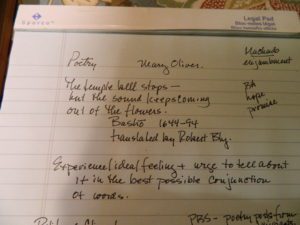 Legal Pad
Poetry Mary Oliver. Machado
enjambment
The temple bell stops—
but the sound keeps coming
out of the flowers.
hope
promise
Bashō 1644-94
translated by Robert Bly.
Experience/idea/feeling + urge to tell about
it in the best possible conjunction
of words.
PBS - poetry posts from